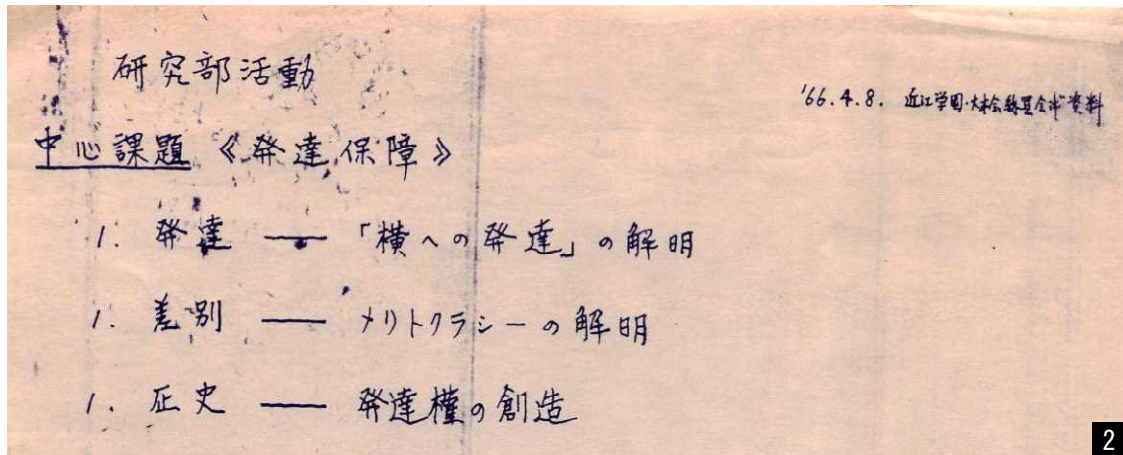 研究部活動
'66.4.8. 近江学園・大会総員会議資料
中心課題 《発達保障》
1. 発達 ── 「横への発達」の解明
1. 差別 ── メリトクラシーの解明
1. 歴史 ── 発達権の創造
2